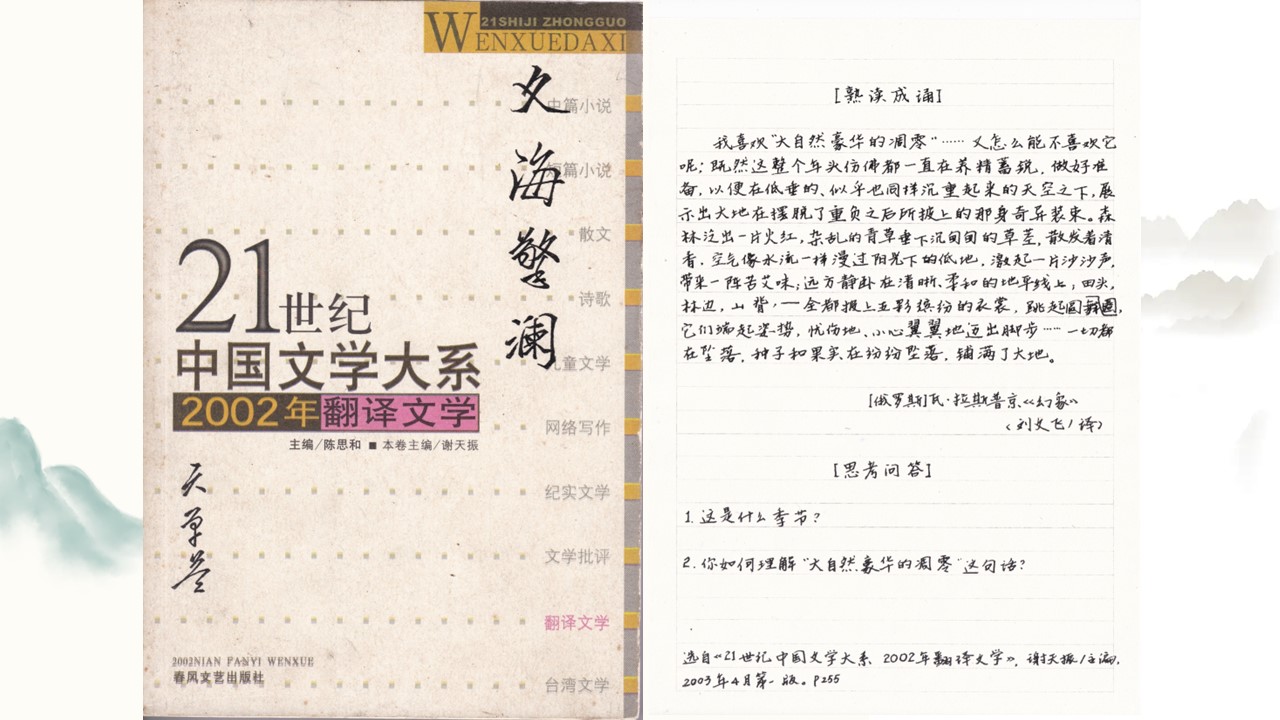 21SHIJI ZHONGGUO
WENXUEDAXI
文海擎澜
中篇小说
短篇小说
散文
诗歌
儿童文学
网络写作
纪实文学
文学批评
翻译文学
台湾文学
21世纪
中国文学大系
2002年翻译文学
主编/陈思和 ■ 本卷主编/谢天振
2002NIAN FANYI WENXUE
春风文艺出版社
[熟读成诵]
我喜欢“大自然豪华的凋零”……又怎么能不喜欢它
呢:既然这整个年头仿佛都一直在养精蓄锐,做好准
备,以便在低垂的、似乎也同样沉重起来的天空之下,展
示出大地在摆脱了重负之后所披上的那身奇异装束。森
林泛出一片火红,杂乱的青草垂下沉甸甸的草茎,散发着清
香,空气像水流一样漫过阳光下的低地,激起一片沙沙声,
带来一阵苦艾味;远方静卧在清晰、柔和的地平线上;田头,
林边,山脊,一全都披上五彩缤纷的衣裳,跳起圆舞圈,
它们端起姿势,忧伤地、小心翼翼地迈出脚步……一切都
在坠落,种子和果实在纷纷坠落,铺满了大地。
[俄罗斯]瓦·拉斯普京《幻象》
(刘文飞/译)
[思考问答]
1.这是什么季节?
2.你如何理解“大自然豪华的凋零”这句话?
选自《21世纪中国文学大系 2002年翻译文学》,谢天振/主编,
2003年4月第一版。P255